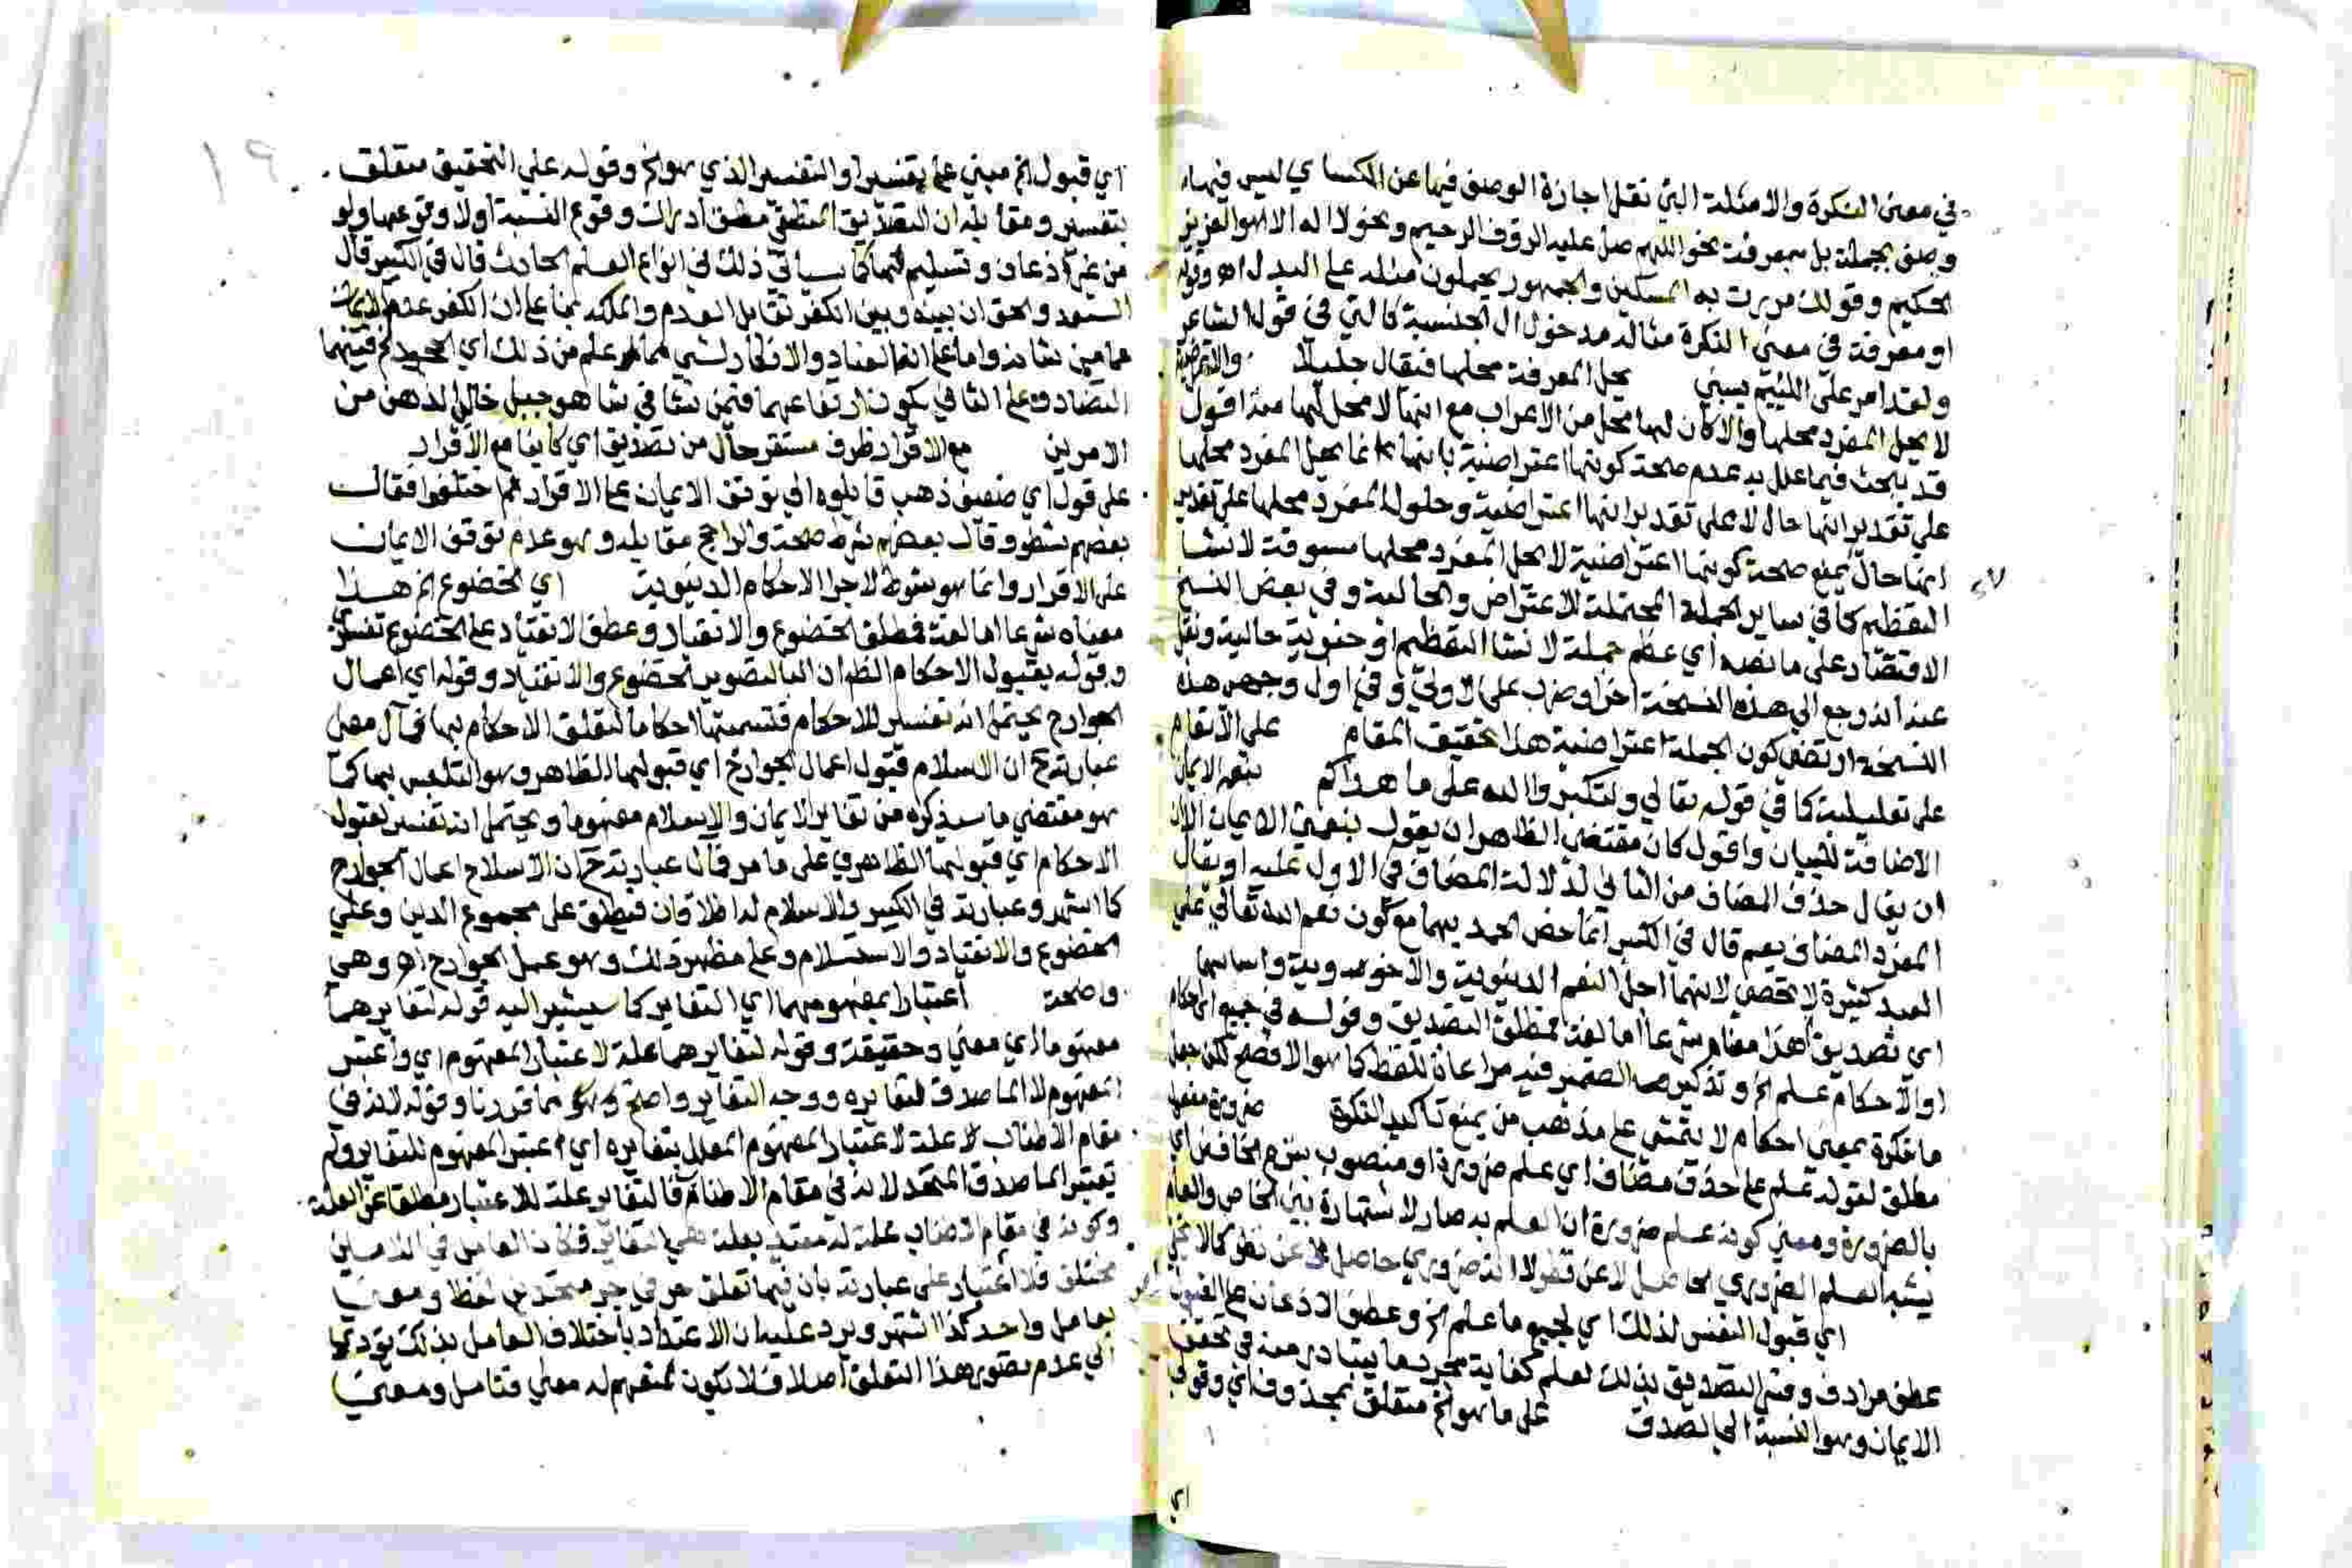 في معنى النكرة والامثلة التي نقل اجازة الوصف فيها عن الكساي ليس فيها
وصف بجملة بل بمعرفة نحو اللهم صل عليه الرؤف الرحيم ونحو لا اله الا هو العزيز
الحكيم وقولك مررت به المسكين والجمهور يحملون مثله على البدل اه وقوله
او معرفة في معنى النكرة مثاله مدخول ال الجنسية كالتي في قول الشاعر
ولقد امر على اللئيم يسبني يحل المعرفة محلها فيقال جليلا
لا يحل المفرد محلها والا كان لها محل من الاعراب مع انها لا محل لها منه اقول
قد يبحث فيما علل به عدم صحة كونها اعتراضية بانها انما يحل المفرد محلها
على تقدير انها حال لا على تقدير انها اعتراضية وحلول المفرد محلها على تقدير
انها حال يمنع صحة كونها اعتراضية لا يحل المفرد محلها مسوقة لانشا
التعظيم كما في ساير الجملة المحتملة للاعتراض والحالية وفي بعض النسخ
الاقتصار على ما نصه اي عظم جملة لانشا التعظيم او حنوية حالية ونقل
عنه انه رجع الى هذه النسخة اخرا وضرب على الاولى وفي اول وجهي هذه
النسخة ارتضى كون الجملة اعتراضية هذا تحقيق المقام على الانعام
على تعليلية كما في قوله تعالى ولتكبروا الله على ما هداكم بنعم الايمان
الاضافة للبيان واقول كان مقتضى الظاهر ان يقول بنعمتي الايمان الا
ان يقال حذف المضاف من الثاني لدلالة المضاف في الاول عليه او يقال
المفرد المضاف يعم قال في الكبير انما خص الحمد بهما مع كون نعم الله تعالى على
العبد كثيرة لا تحصى لانهما اجل النعم الدينوية والاخروية واساسها
اي تصديق هذا معناه شرعا اما لغة فمطلق التصديق وقوله في جميع احكام
او الاحكام علم الخ وتذكيره الضمير فيه مراعاة للفظ كما هو الافصح لكن جعل
ما نكرة بمعنى احكام لا يتمشى على مذهب من يمنع تاكيد النكرة ضرورة مفعول
مطلق لقوله علم على حذف مضاف اي علم ضرورة او منصوب بنزع الخافض اي
بالضرورة ومعنى كونه علم ضرورة ان العلم به صار لاشتهاره بين الخاص والعام
يشبه العلم الضروري الحاصل لا عن نظر لا انه ضروري حاصل لا عن نظر كما لا يخفى
اي قبول النفس لذلك اي لجميع ما علم الخ وعطف الاذعان على القبول
عطف مرادف وفسر التصديق بذلك لعلم كفاية مجرد ما يتبادر منه في تحقق
الايمان وهو النسبة الى الصدق على ما هو الخ متعلق بمحذوف اي وقوفي
اي
١٩
اي قبول الخ مبني على تفسير او التفسير الذي هو الخ وقوله على التحقيق متعلق
بتفسير ومقابله ان التصديق المنطقي مطلق ادراك وقوع النسبة اولا وقوعها ولو
من غير اذعان وتسليم لهما كما سياتي ذلك في انواع العلم الحادث قال في الكبير قال
السعد والحق ان بينه وبين الكفر تقابل العدم والملكة بنا على ان الكفر عدم الايمان
عما من شانه واما على انه العناد والانكار لشي مما علم من ذلك اي الجحود له فبينهما
التضاد وعلى الثاني يكون ارتفاعهما فيمن نشا في شاهق جبل خالي الذهن من
الامرين مع الاقرار ظرف مستقر حال من تصديق اي كاينا مع الاقرار
على قول اي ضعيف ذهب قايلوه الى توقف الايمان على الاقرار ثم اختلفوا فقال
بعضهم شطر وقال بعضهم شرط صحة والراجح مقابله وهو عدم توقف الايمان
على الاقرار وانما هو شرط لاجرا الاحكام الدينوية اي الخضوع الخ هذا
معناه شرعا اما لغة فمطلق الخضوع والانقياد وعطف الانقياد على الخضوع تفسيري
وقوله بقبول الاحكام الظ ان البا لتصوير الخضوع والانقياد وقوله اي اعمال
الجوارح يحتمل انه تفسير للاحكام فتسميتها احكاما لتعلق الاحكام بها فمآل معنى
عبارته ح ان الاسلام قبول اعمال الجوارح اي قبولها الظاهر وهو التلبس بها كما
هو مقتضى ما سيذكره من تغاير الايمان والاسلام مفهوما ويحتمل انه تفسير لقبول
الاحكام اي قبولها الظاهري على ما مر فمآل عبارته ح ان الاسلام اعمال الجوارح
كما اشتهر وعبارته في الكبير والاسلام له اطلاقان فيطلق على مجموع الدين وعلى
الخضوع والانقياد والاستسلام وعلى مظهر ذلك وهو عمل الجوارح اه وهي
واضحة اعتبارا بمفهومهما اي التغاير كما سيشير اليه قوله لتغايرهما
مفهوما اي معنى وحقيقة وقوله لتغايرهما علة لاعتبار المفهوم اي واعتبر
المفهوم لا الماصدق لتغايره ووجه التغاير واضح مما قررنا وقوله لانه في
مقام الاطناب علة لاعتبار المفهوم المعلل بتغايره اي اعتبر المفهوم للتغاير ولم
يعتبر الماصدق المتحد لانه في مقام الاطناب فالتغاير علة للاعتبار مطلقا عن العلة
وكونه في مقام الاطناب علة له مقيد بعلة هي التغاير فكان العامل في اللامين
مختلف فلا اعتبار على عبارته بان فيها تعلق حرفي جر متحدين لفظا ومعنى
بعامل واحد كذا اشتهر ويرد عليه ان الاعتداد باختلاف العامل بذلك يؤدي
الى عدم تصوير هذا التعلق اصلا فلا يكون لمنعهم له معنى فتامل ومعنى